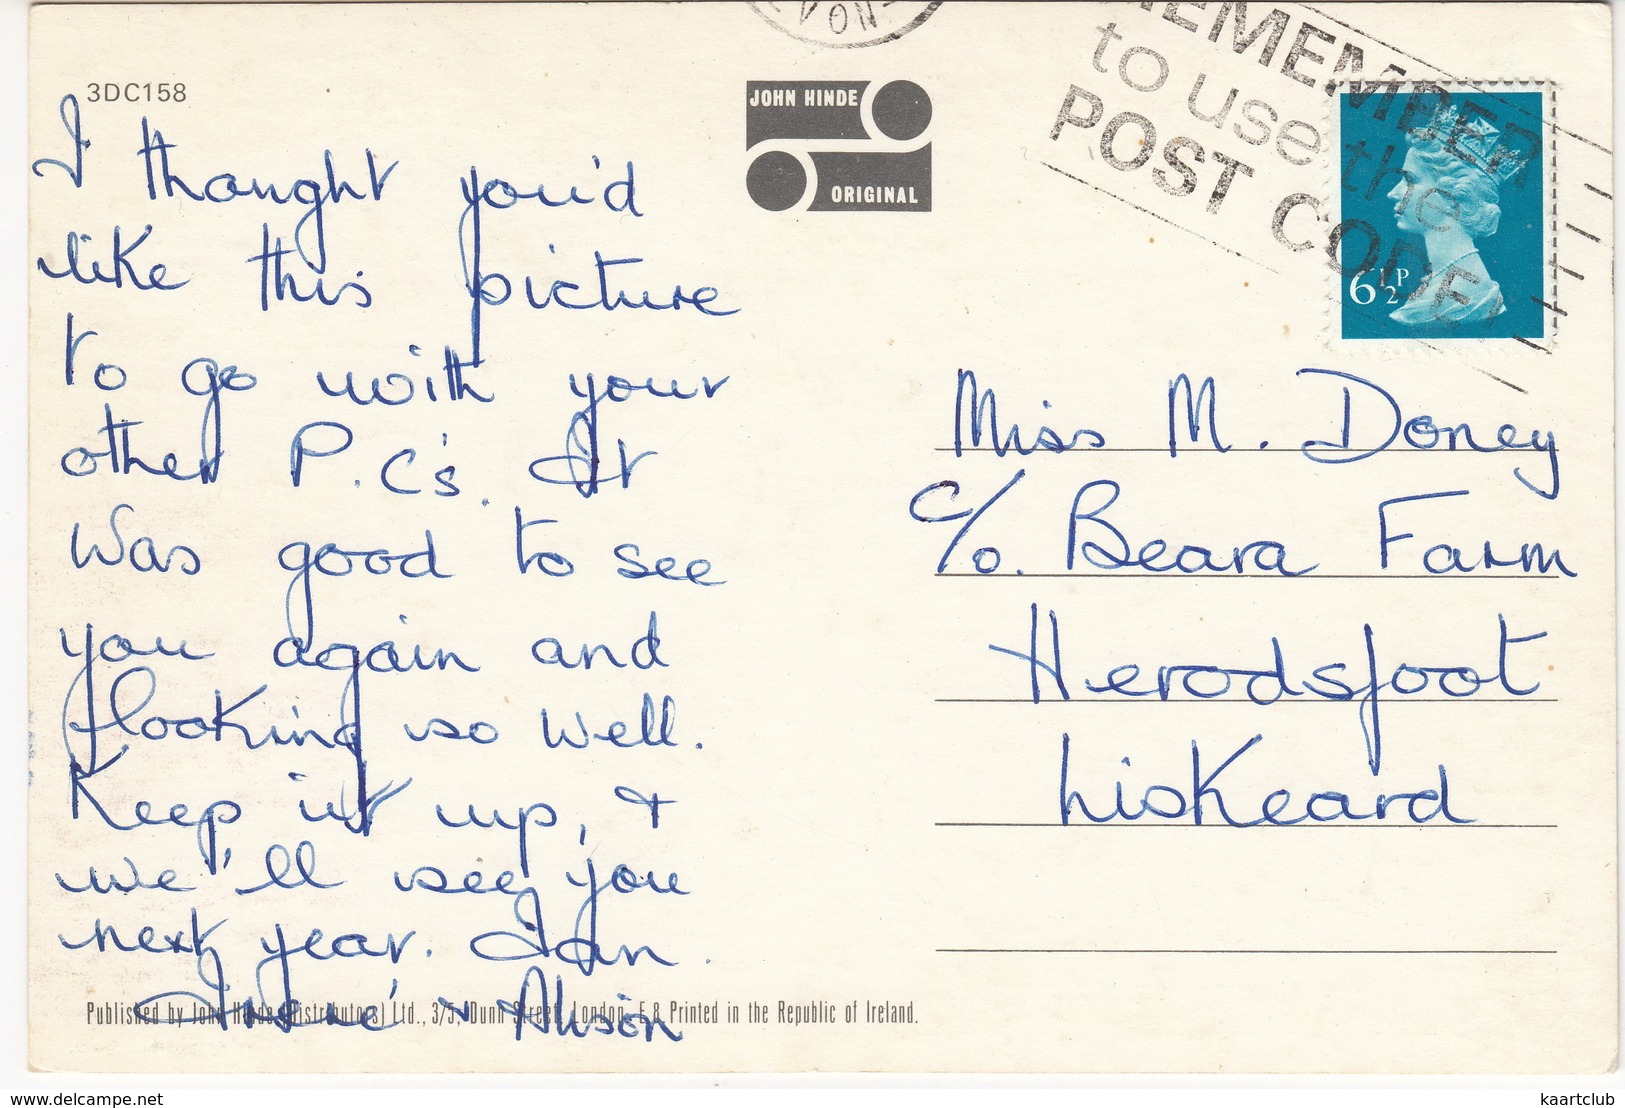 3DC158
JOHN HINDE
ORIGINAL
NOV
REMEMBER
to use the
POST CODE
6½P
I thought you'd
like this picture
to go with your
other P.C's. It
was good to see
you again and
looking so well.
Keep it up, +
we'll see you
next year. Ian.
+ Alison
Miss M. Doney
c/o. Beara Farm
Herodsfoot
Liskeard
Published by John Hinde (Distributors) Ltd., 3/5, Dunn Street, London, E.8 Printed in the Republic of Ireland.
www.delcampe.net
kaartclub